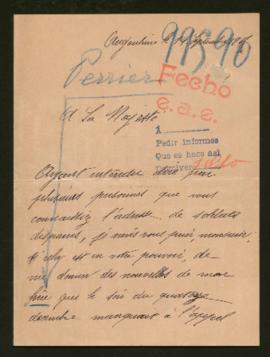 99590
Perrier
Fecho
e.a.e.
A Sa Majesté
1
Pedir informes
Que se hace así
Devolver
Ayant entendu dire par
plusieurs personnes que vous
connaissiez l'adresse de soldats
disparus, je viens vous prier, monsieur,
si cela est en votre pouvoir, de
me donner des nouvelles de mon
frère que le soir du quatorze
décembre manquait à l'appel